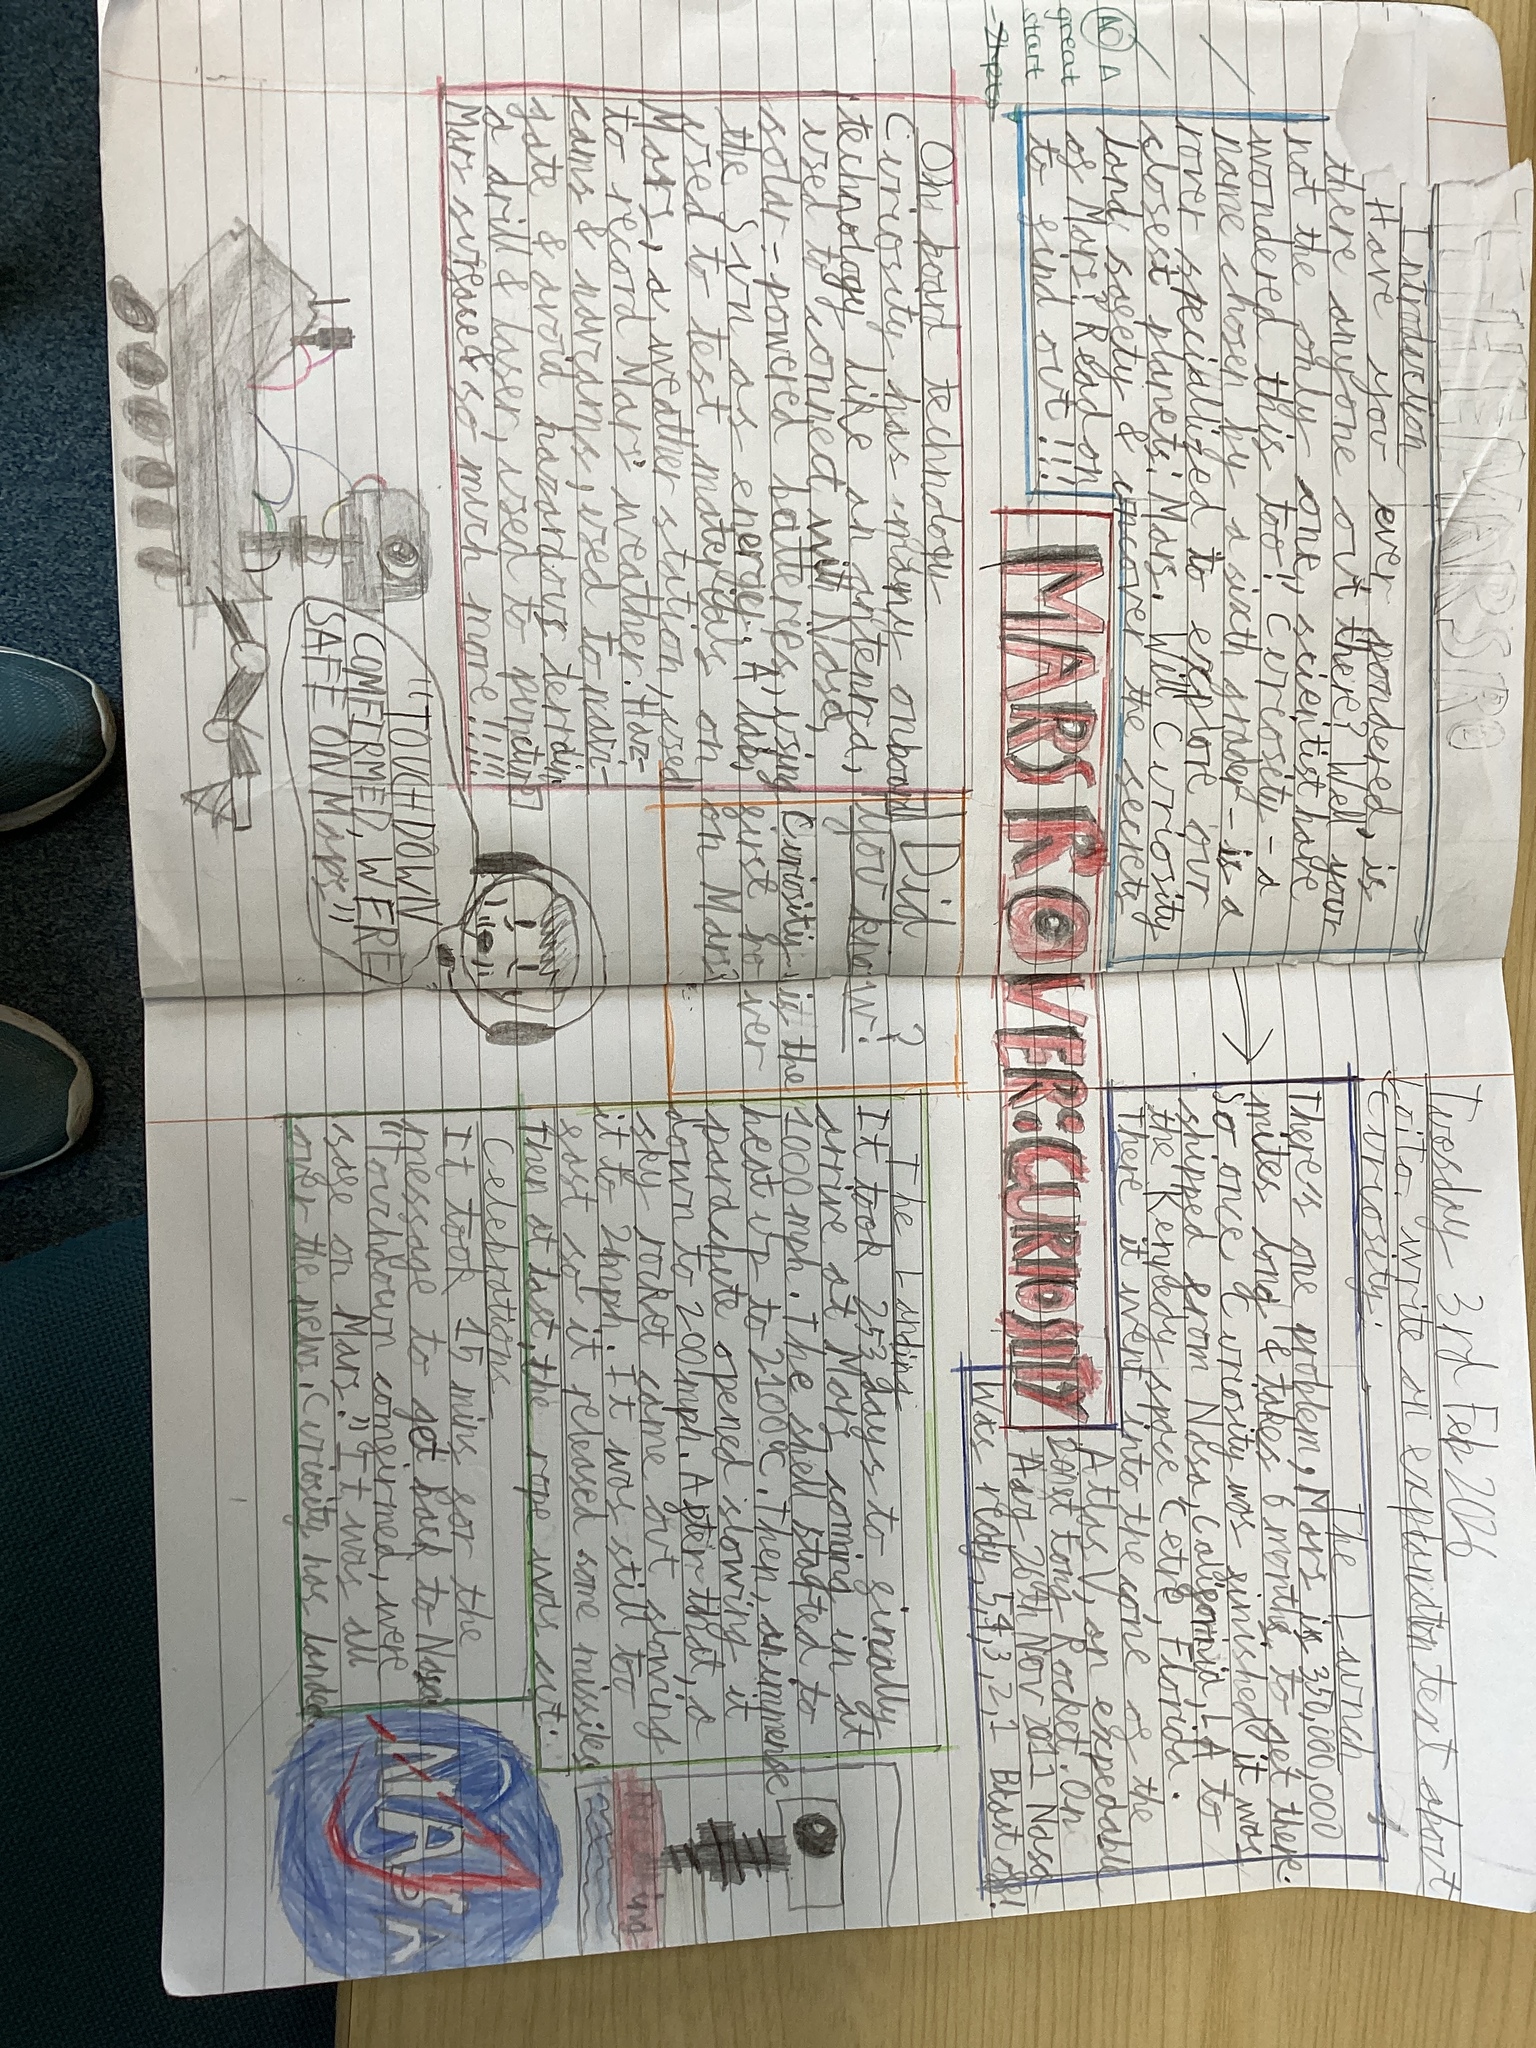 Tuesday 3rd Feb 2026
Lo: to write an explanation text about
Curiosity.
THE MARS RO
Introduction
Have you ever pondered, is
there anyone out there? Well your
not the only one, scientist have
wondered this too! Curiosety - a
name chosen by a sixth grader - is a
rover specialized to explore our
closest planets: Mars. Will Curiosity
land safety & uncover the secrets
of Mars? Read on
to find out!!!
AO A
great
start
MARS ROVER: CURIOSITY
Onboard technology
Curiosity has many onboard
technology like an antenna,
used to connect wit Nasa,
solar-powered batteries, using
the Sun as energy. A lab,
used to test materials on
Mars, a weather station, used
to record Mars' weather. Haz-
cams & navcams, used to navi-
gate & avoid hazardous terrain
a drill & laser, used to puncture
Mars surface & so much more!!!!!!
Did
you know?
Curiosity is the
first rover
on Mars?
"TOUCHDOWN
COMFIRMED, WERE
SAFE ON Mars"
The Launch
There's one problem, Mars is 350,000,000
miles long & takes 6 months to get there.
So once Curiosity was finished it was
shipped from Nasa, Califonia, LA to
the Kenedy space Cetre, Florida.
There it went into the cone of the
Atlas V, an expedable
Boost tons Rocket. On
Aat 26th Nov 2011 Nasa
was redy, 5,4,3,2,1 Blast off!
The Landing
It took 253 days to finally
arrive at Mars coming in at
1000mph. The shell started to
heat up to 2100°C. Then, an impense
parachute opened slowing it
down to 200mph. After that, a
sky rocket came out slowing
it to 2mph. It was still to
fast so it released some missiles
Then at last, the rope was cut.
Celebrations
It took 15 mins for the
message to get back to Nasa
"Touchdown comfirmed, were
safe on Mars." It was all
over the news. Curiosity has landed
NASA